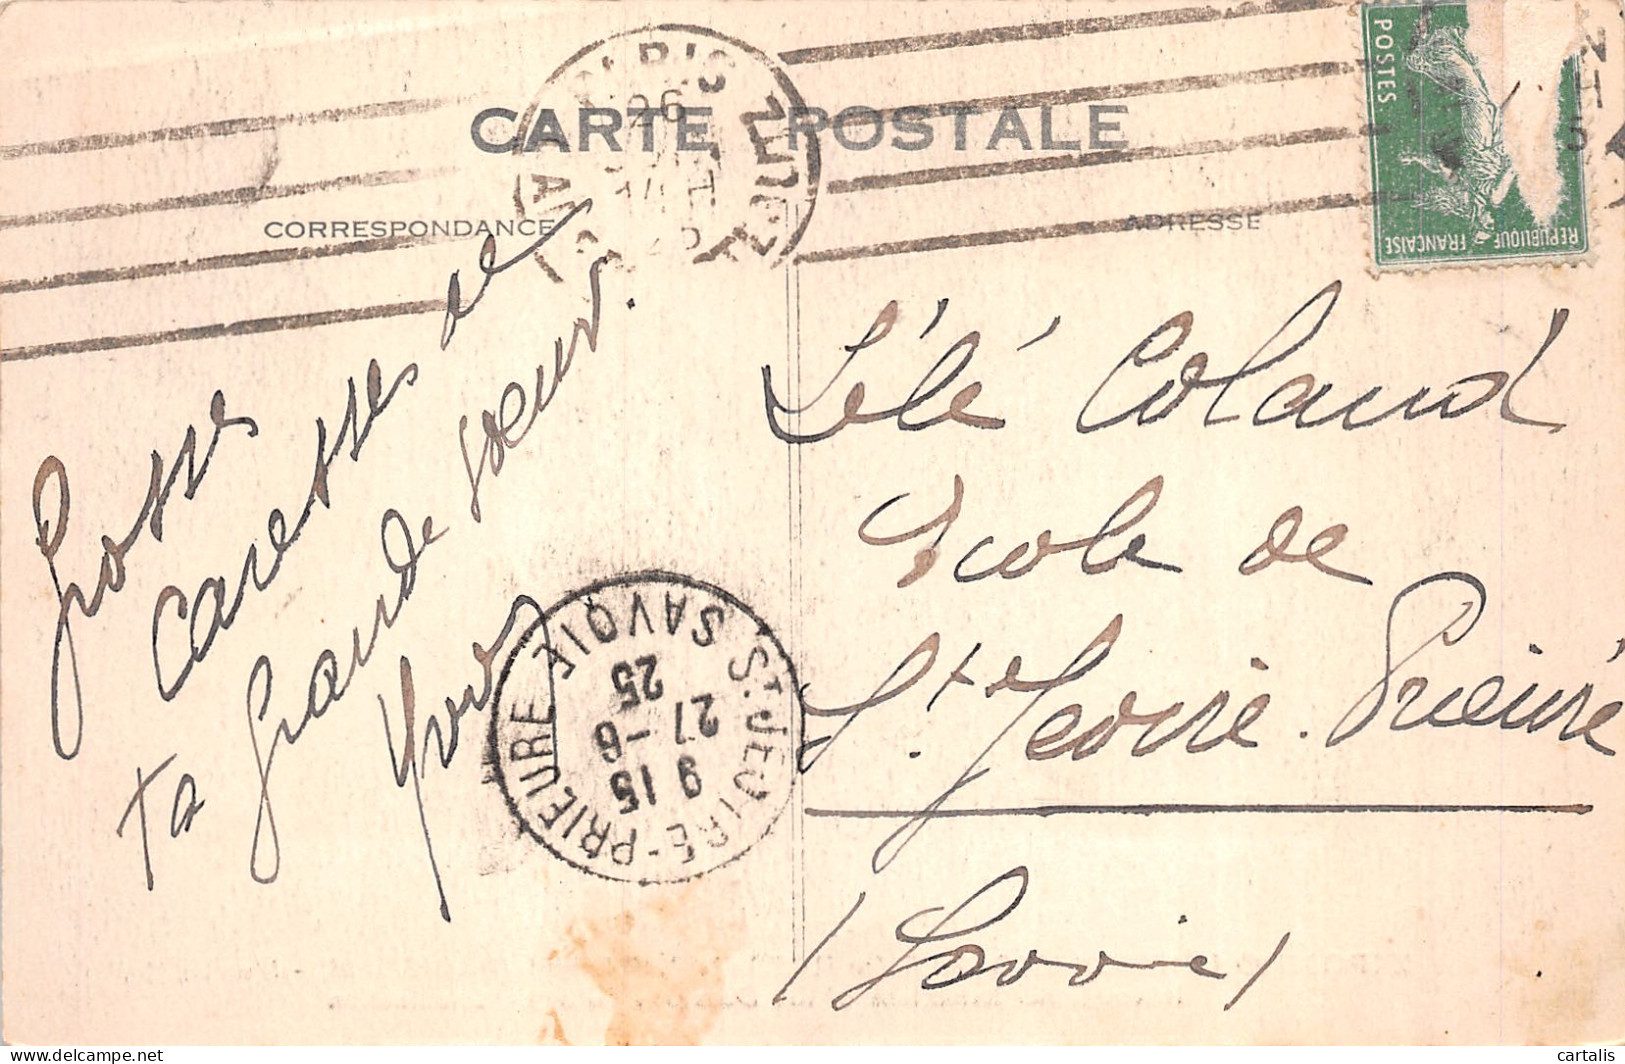 CARTE POSTALE
CORRESPONDANCE
ADRESSE
PARIS
POSTES
REPUBLIQUE FRANÇAISE
Grosses
Caresses de
ta grande soeur.
Lélé Coland
Ecole de
St Jeoire. Prieuré
(Savoie)
ST. JEOIRE-PRIEURE SAVOIE
9 15
27 -6
25
cartalis
delcampe.net